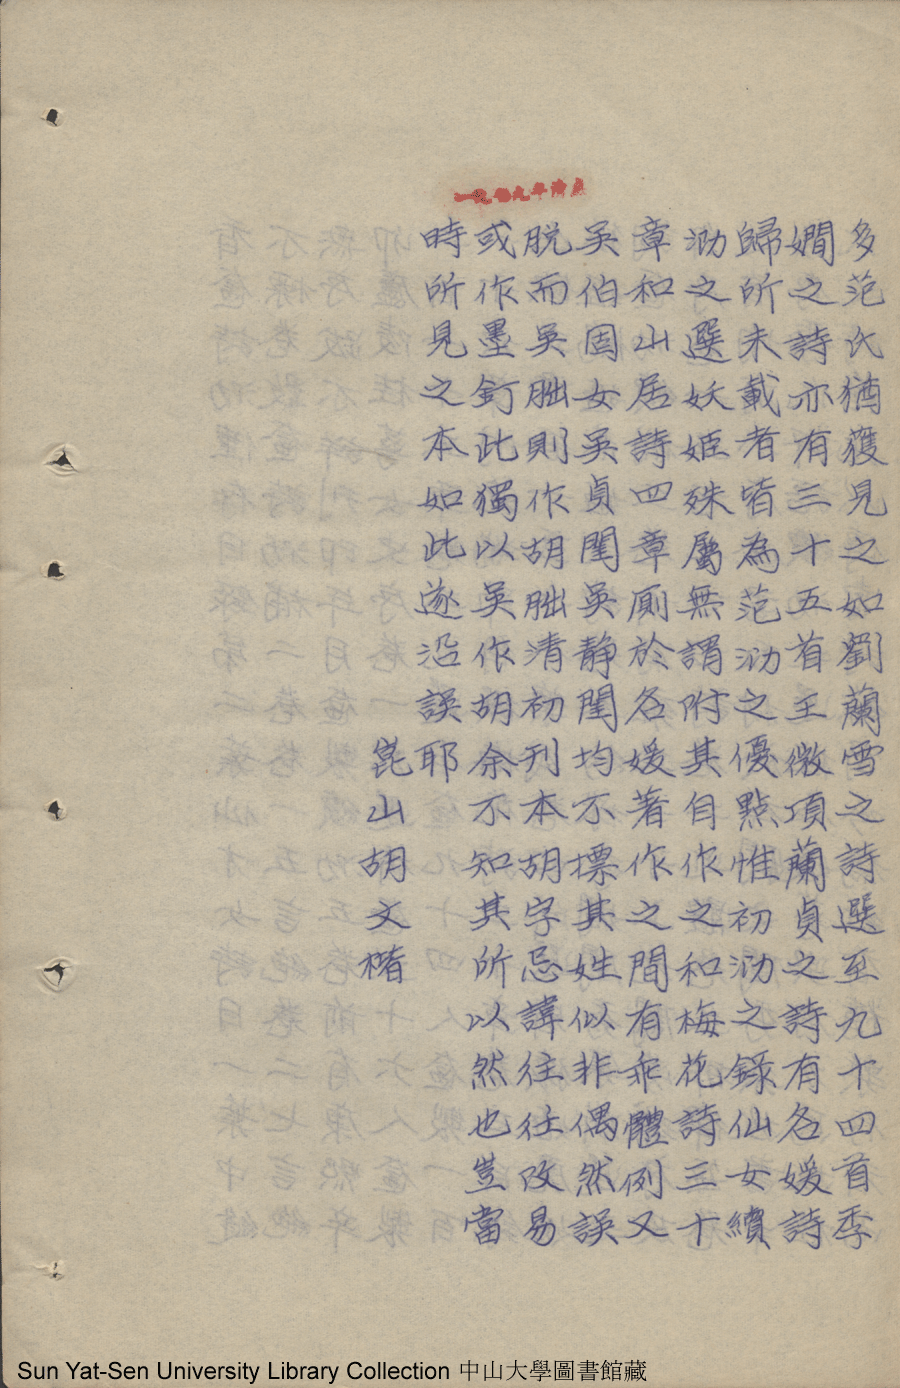 多范氏猶獲見之如劉蘭雪之詩選至九十四首季
嫺之詩亦有三十五首王微項蘭貞之詩有各媛詩
歸所未載者皆為范汋之優點惟初汋之錄仙女續
汋之選妖姬殊屬無謂附其自作之和梅花詩三十
章和山居詩四章厠於各媛著作之間有乖體例又
吳伯固女吳貞閨吳靜閨均不標其姓似非偶然誤
脫而吳朏則作胡朏清初刊本胡字忌諱往往改易
或作墨釘此獨以吳作胡余不知其所以然也豈當
時所見之本如此遂沿誤耶
崑山胡文楷
一九七九年
Sun Yat-Sen University Library Collection 中山大學圖書館藏